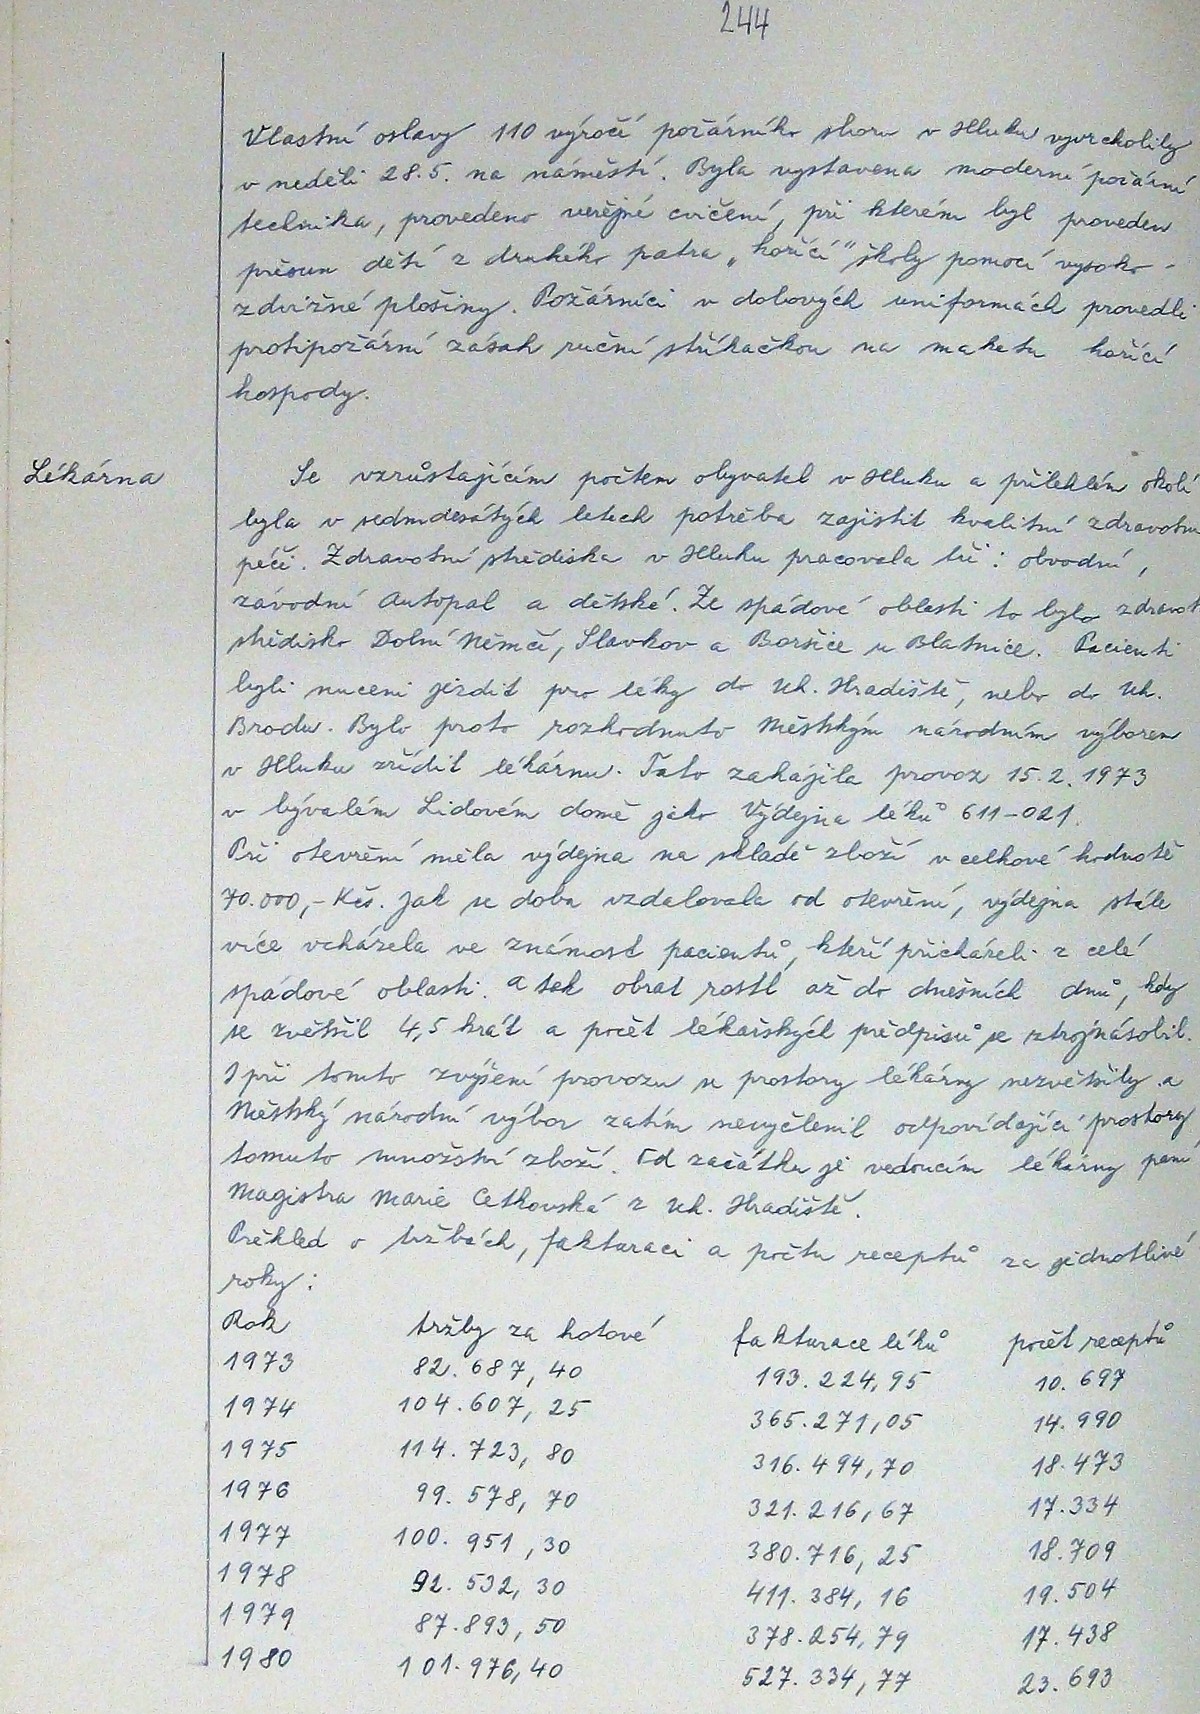 244
Vlastní oslavy 110 výročí požárního sboru v Hluku vyvrcholily
v neděli 28.5. na náměstí. Byla vystavena moderní požární
technika, provedeno veřejné cvičení, při kterém byl proveden
přesun dětí z druhého patra „hořící" školy pomocí vysoko-
zdvižné plošiny. Požárníci v dobových uniformách provedli
protipožární zásah ruční stříkačkou na maketu hořící
hospody.
Lékárna
Se vzrůstajícím počtem obyvatel v Hluku a přilehlém okolí
byla v sedmdesátých letech potřeba zajistit kvalitní zdravotní
péči. Zdravotní střediska v Hluku pracovala tři: obvodní,
závodní Autopal a dětské. Ze spádové oblasti to bylo zdravot
středisko Dolní Němčí, Slavkov a Boršice u Blatnice. Pacienti
byli nuceni jezdit pro léky do Uh. Hradiště, nebo do Uh.
Brodu. Bylo proto rozhodnuto Městským národním výborem
v Hluku zřídit lékárnu. Tato zahájila provoz 15.2.1973
v bývalém Lidovém domě jako Výdejna léků 611-021.
Při otevření měla výdejna na skladě zboží v celkové hodnotě
70.000,- Kčs. Jak se doba vzdalovala od otevření, výdejna stále
více vcházela ve známost pacientů, kteří přicházeli z celé
spádové oblasti. a tak obrat rostl až do dnešních dnů, kdy
se zvětšil 4,5 krát a počet lékařských předpisů se ztrojnásobil.
I při tomto zvýšení provozu se prostory lékárny nezvětšily a
Městský národní výbor zatím nevyčlenil odpovídající prostory
tomuto množství zboží. Od začátku je vedoucím lékárny paní
Magistra Marie Cetkovská z Uh. Hradiště.
Přehled o tržbách, fakturaci a počtu receptů za jednotlivé
roky:
Rok tržby za hotové fakturace léků počet receptů
1973 82.687,40 193.224,95 10.697
1974 104.607,25 365.271,05 14.990
1975 114.723,80 316.494,70 18.473
1976 99.578,70 321.216,67 17.334
1977 100.951,30 380.716,25 18.709
1978 92.532,30 411.384,16 19.504
1979 87.893,50 378.254,79 17.438
1980 101.976,40 527.334,77 23.693